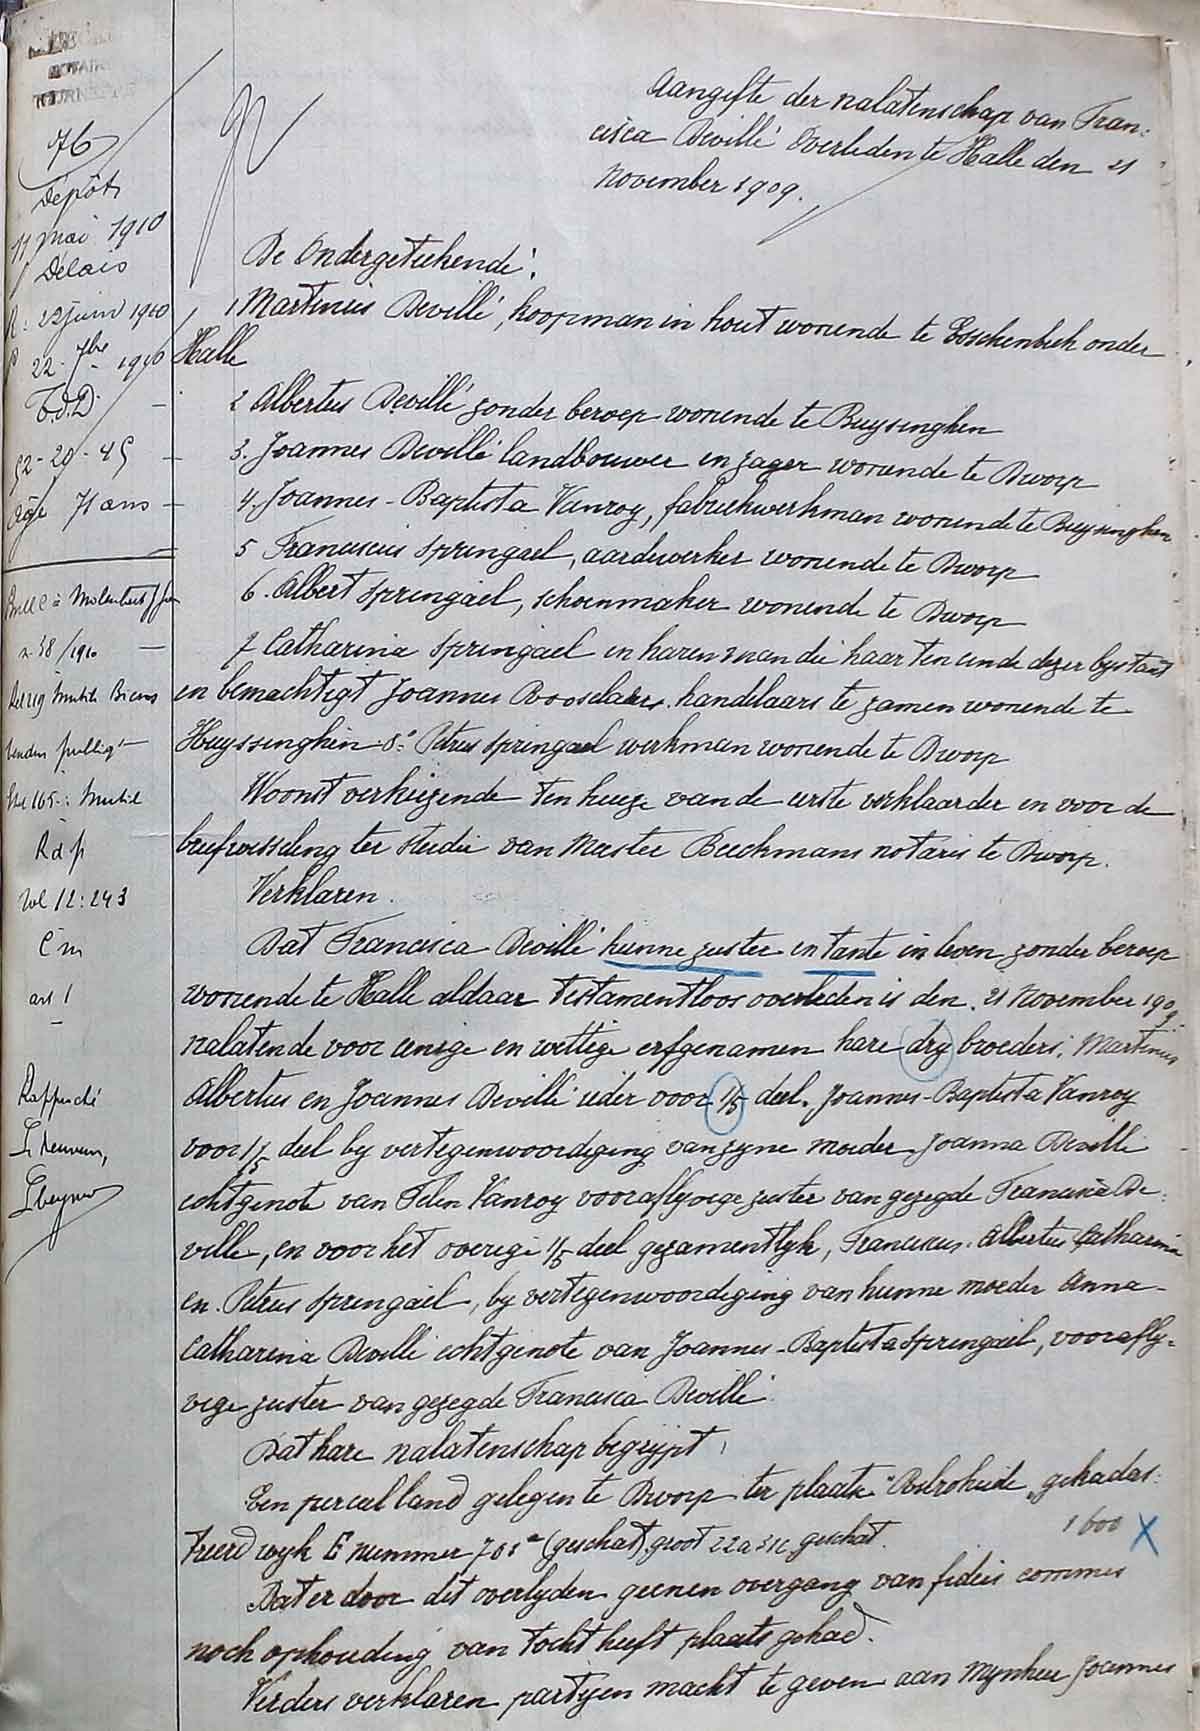 76
Dépôt
11 mai 1910
Délais
R: 22 juin 1910
P 22 7bre 1910
T.d.D.
52-29-45
âge 71 ans
n 38/1910
Rel 219 Mutile Biens
Art 165: Mutil
R d p
Vol 12: 243
Cm
art 1
Aangifte der nalatenschap van Fran:
cisca Devillé overleden te Halle den 21
November 1909.
De Ondergeteekende:
1 Martinus Devillé, koopman in hout wonende te Esschenbeek onder
Halle
2 Albertus Devillé zonder beroep wonende te Buysinghen
3. Joannes Devillé landbouwer en jager wonende te Dworp
4. Joannes-Baptista Vanroy, fabriekwerkman wonende te Buysinghen
5 Franciscus Springael, aardewerker wonende te Dworp
6. Albert Springael, schoenmaker wonende te Dworp
7 Catharina Springael en haren man die haar ten einde dezer bystaat
en bemachtigt Joannes handelaars te zamen wonende te
Huyssinghen 8° Petrus Springael werkman wonende te Dworp
Woonst verkiezende ten huize van de eerste verklaarder en voor de
briefwisseling ter studie van Meester Beeckmans notaris te Dworp.
Verklaren.
Dat Francisca Devillé hunne zuster en tante in leven zonder beroep
wonende te Halle aldaar testamentloos overleden is den 21 November 1909.
Nalatende voor eenige en wettige erfgenamen hare dry broeders: Martinus
Albertus en Joannes Devillé ieder voor 1/5 deel. Joannes-Baptista Vanroy
voor 1/5 deel by vertegenwoordiging van zyne moeder Joanna Devillé
echtgenote van Felix Vanroy vooraflyvige zuster van gezegde Francisca De:
ville, en voor het overige 1/5 deel gezamentlyk, Franciscus. Albertus Catharina
en Petrus Springael, by vertegenwoordiging van hunne moeder Anna-
Catharina Devillé echtgenote van Joannes-Baptista Springael, voorafly=
vige zuster van gezegde Francisca Devillé.
Dat hare nalatenschap begrypt:
Een perceel land gelegen te Dworp ter plaatse gekadas:
treerd wyk E nummer 701a (geschat) groot 22a 31c geschat. 1600 X
Dat er door dit overlyden geenen overgang van fideis commis
noch ophouding van tocht heeft plaats gehad.
Verders verklaren partyen macht te geven aan Mynheer Joannes